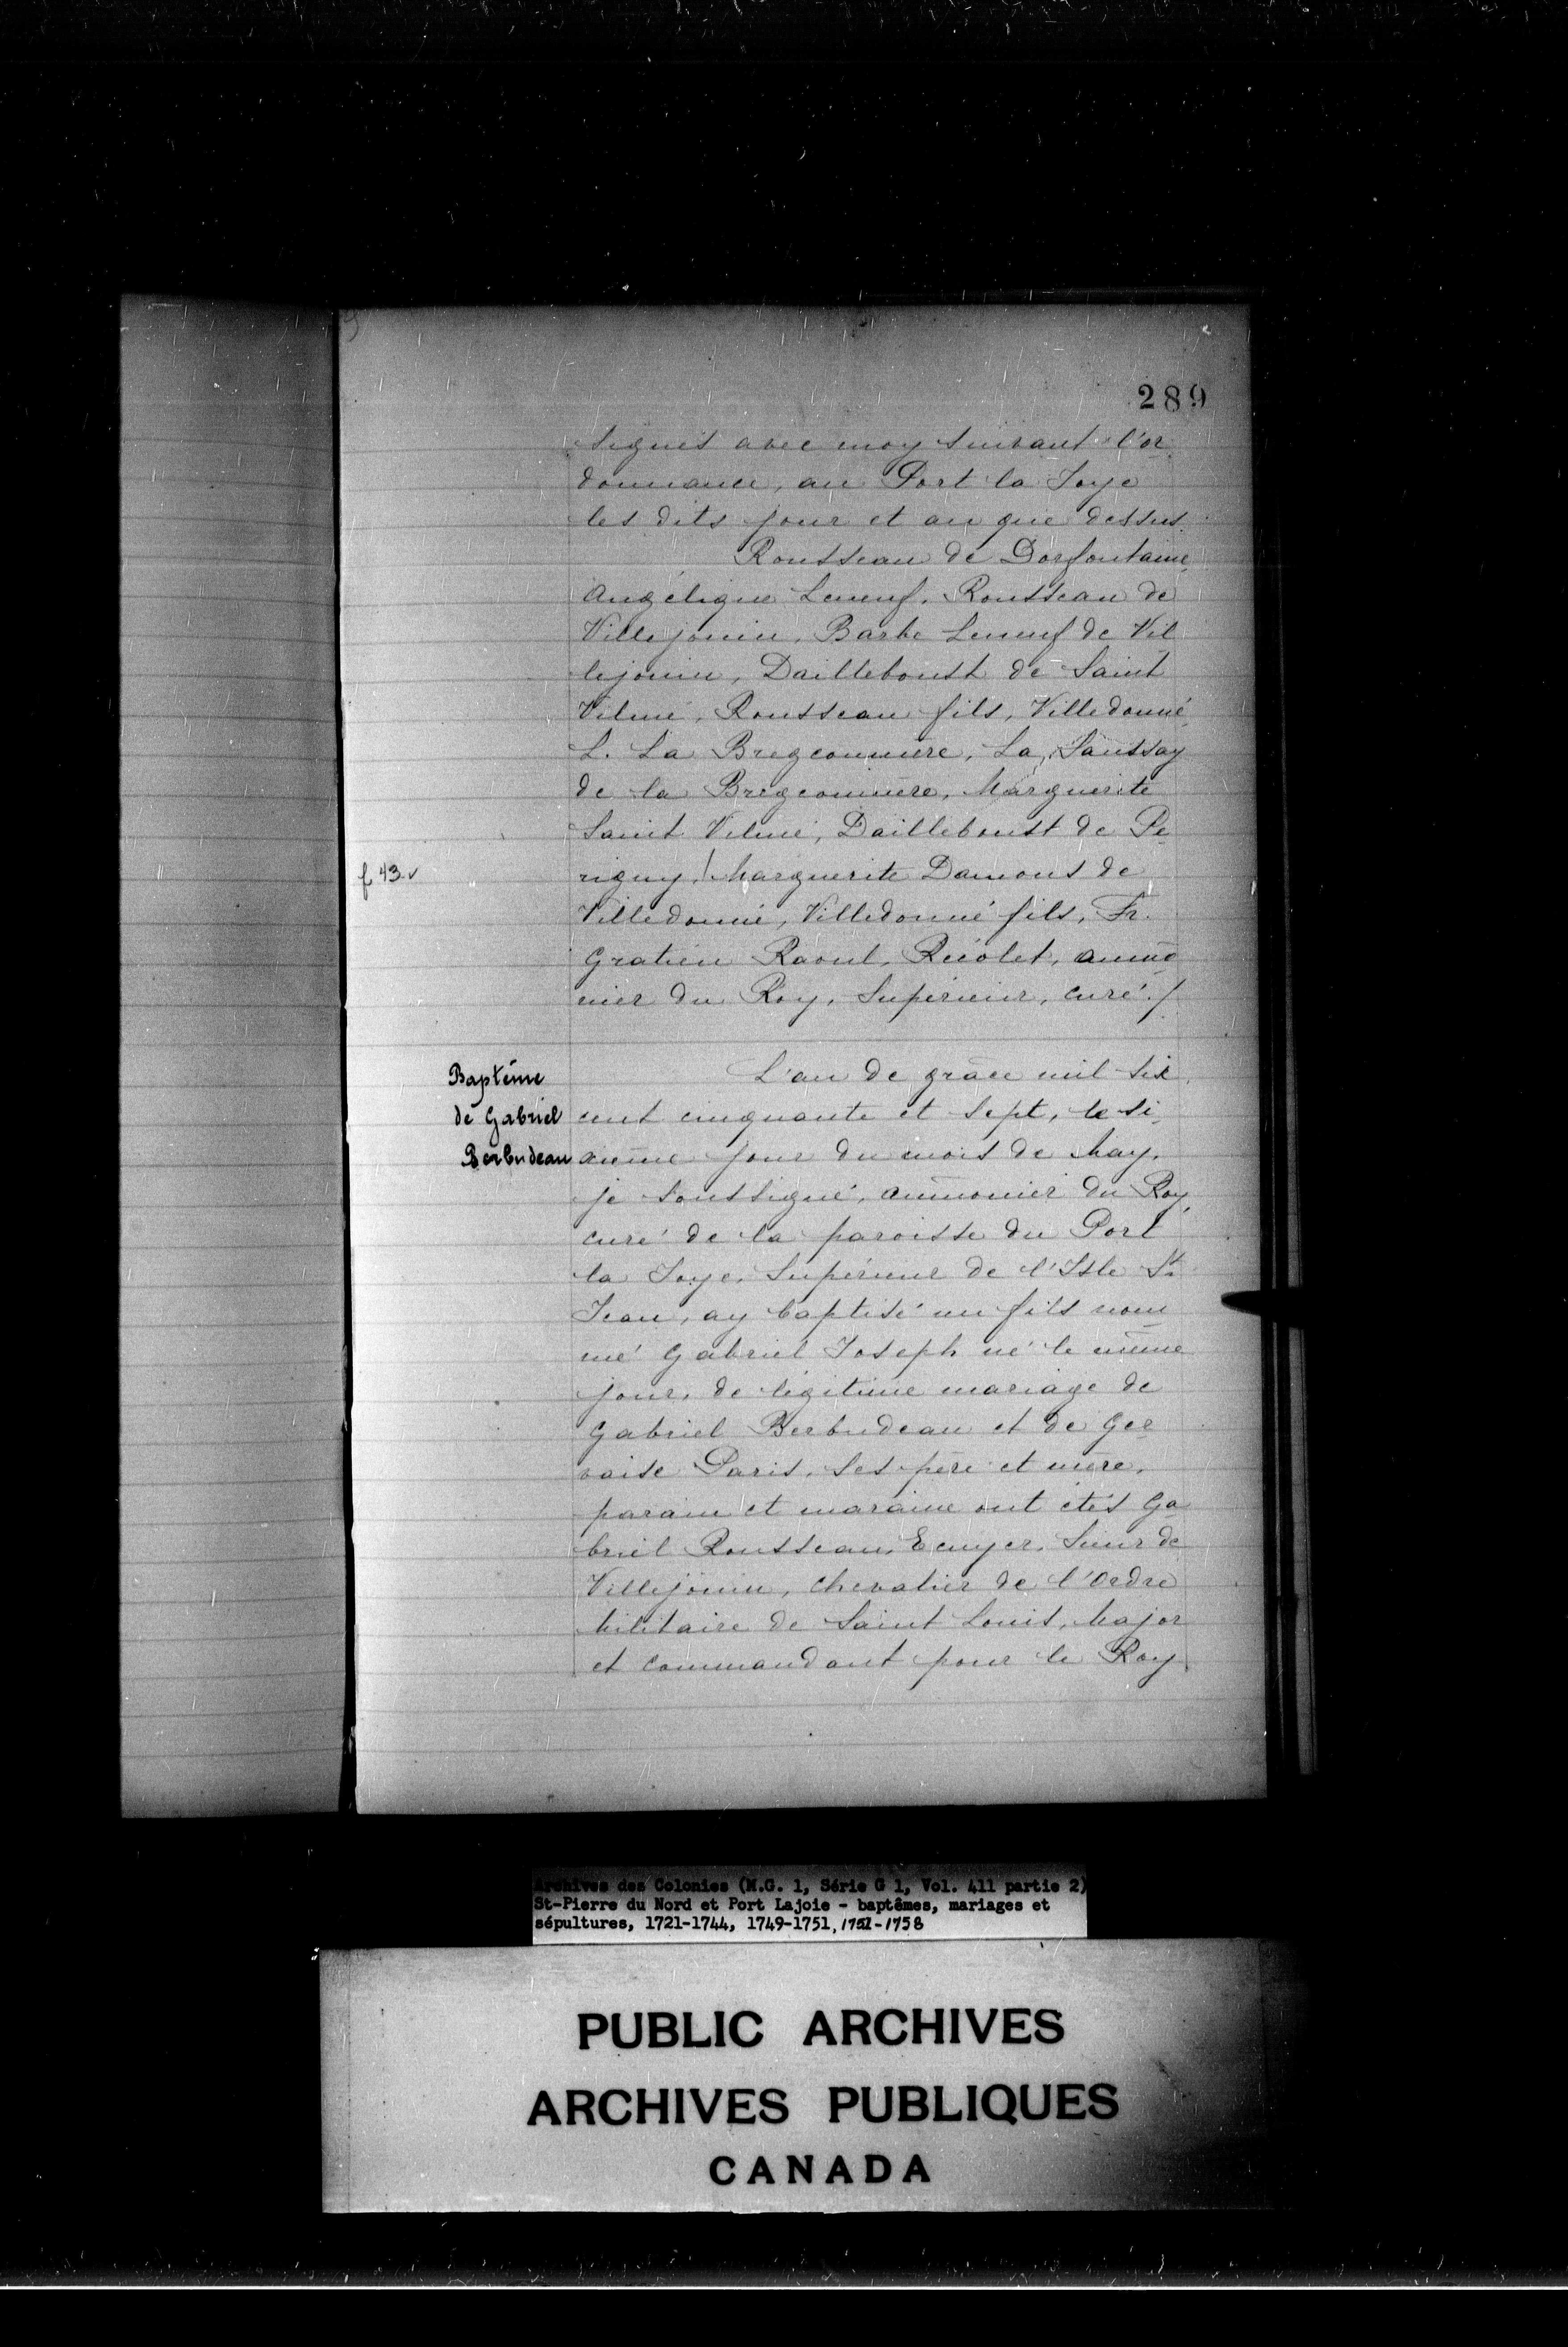 289
signés avec moy suivant l'or
donnance, au Port la Joye
les dits jour et an que dessus.
Rousseau de Dorfontaine,
Angélique Leneuf, Rousseau de
Villejouin, Barbe Leneuf de Vil
lejouin, Dailleboust de Saint
Vilmé, Rousseau fils, Villedonné,
L. La Bregeonniere, La Saussay
de la Bregeonnière, Marguerite
Saint Vilmé, Dailleboust de Pe
f 43 v
rigny / Marguerite Damours de
Villedonné, Villedonné fils, Fr.
Gratien Raoul, Récolet, aumô
nier du Roy, Supérieur, curé./
Baptême
de Gabriel
Berbudeau
L'an de grâce mil six
cent cinquante et sept, le si
xième jour du mois de May,
je soussigné, aumonier du Roy,
curé de la paroisse du Port
la Joye, Supérieur de l'Isle St.
Jean, ay baptisé un fils nom
mé Gabriel Joseph né le même
jour, de légitime mariage de
Gabriel Berbudeau et de Ger
vaise Paris, ses père et mère,
parain et maraine ont étés Ga
briel Rousseau, Ecuyer, Sieur de
Villejouin, Chevalier de l'Ordre
Militaire de Saint Louis, Major
et commandant pour le Roy
Archives des Colonies (M.G. 1, Série G 1, Vol. 411 partie 2)
St-Pierre du Nord et Port Lajoie - baptêmes, mariages et
sépultures, 1721-1744, 1749-1751, 1752-1758
PUBLIC ARCHIVES
ARCHIVES PUBLIQUES
CANADA